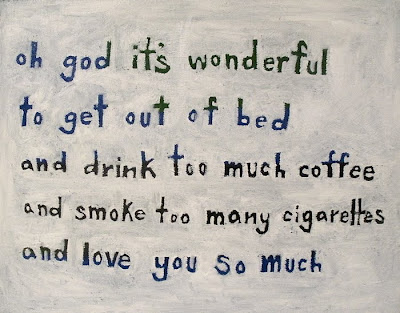 oh god it's wonderful
to get out of bed
and drink too much coffee
and smoke too many cigarettes
and love you so much